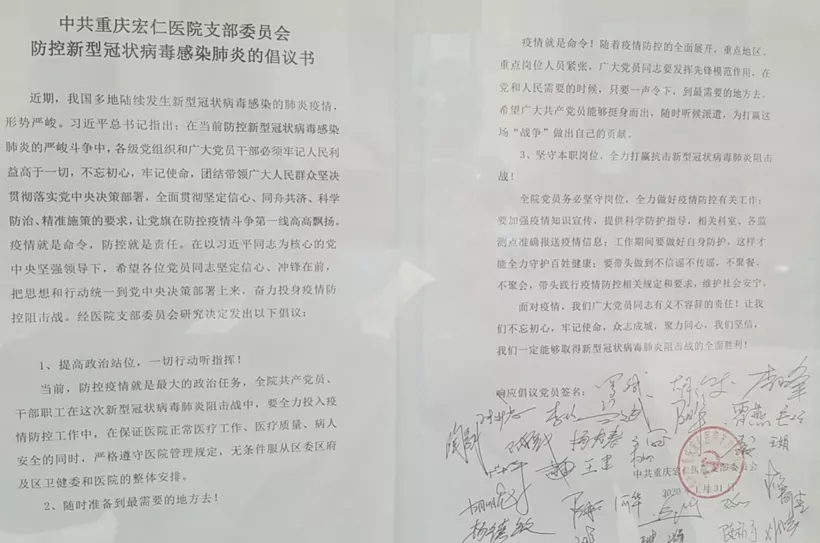 中共重庆宏仁医院支部委员会
防控新型冠状病毒感染肺炎的倡议书
近期，我国多地陆续发生新型冠状病毒感染的肺炎疫情，
形势严峻。习近平总书记指出：在当前防控新型冠状病毒感染
肺炎的严峻斗争中，各级党组织和广大党员干部必须牢记人民利
益高于一切，不忘初心，牢记使命，团结带领广大人民群众坚决
贯彻落实党中央决策部署，全面贯彻坚定信心、同舟共济、科学
防治、精准施策的要求，让党旗在防控疫情斗争第一线高高飘扬。
疫情就是命令，防控就是责任。在以习近平同志为核心的党
中央坚强领导下，希望各位党员同志坚定信心、冲锋在前，
把思想和行动统一到党中央决策部署上来，奋力投身疫情防
控阻击战。经医院支部委员会研究决定发出以下倡议：
1、提高政治站位，一切行动听指挥！
当前，防控疫情就是最大的政治任务，全院共产党员、
干部职工在这次新型冠状病毒肺炎阻击战中，要全力投入疫
情防控工作中，在保证医院正常医疗工作、医疗质量、病人
安全的同时，严格遵守医院管理规定，无条件服从区委区府
及区卫健委和医院的整体安排。
2、随时准备到最需要的地方去！
疫情就是命令！随着疫情防控的全面展开，重点地区、
重点岗位人员紧张，广大党员同志要发挥先锋模范作用，在
党和人民需要的时候，只要一声令下，到最需要的地方去。
希望广大共产党员能够挺身而出，随时听候派遣，为打赢这
场“战争”做出自己的贡献。
3、坚守本职岗位，全力打赢抗击新型冠状病毒肺炎阻击
战！
全院党员务必坚守岗位，全力做好疫情防控有关工作；
要加强疫情知识宣传，提供科学防护指导，相关科室、各监
测点准确报送疫情信息；工作期间要做好自身防护，这样才
能全力守护百姓健康；要带头做到不信谣不传谣，不聚餐、
不聚会，带头践行疫情防控相关规定和要求，维护社会安宁。
面对疫情，我们广大党员同志有义不容辞的责任！让我
们不忘初心，牢记使命，众志成城，聚力同心，我们坚信，
我们一定能够取得新型冠状病毒肺炎阻击战的全面胜利！
响应倡议党员签名：
中共重庆宏仁医院支部委员会
2020年1月31日